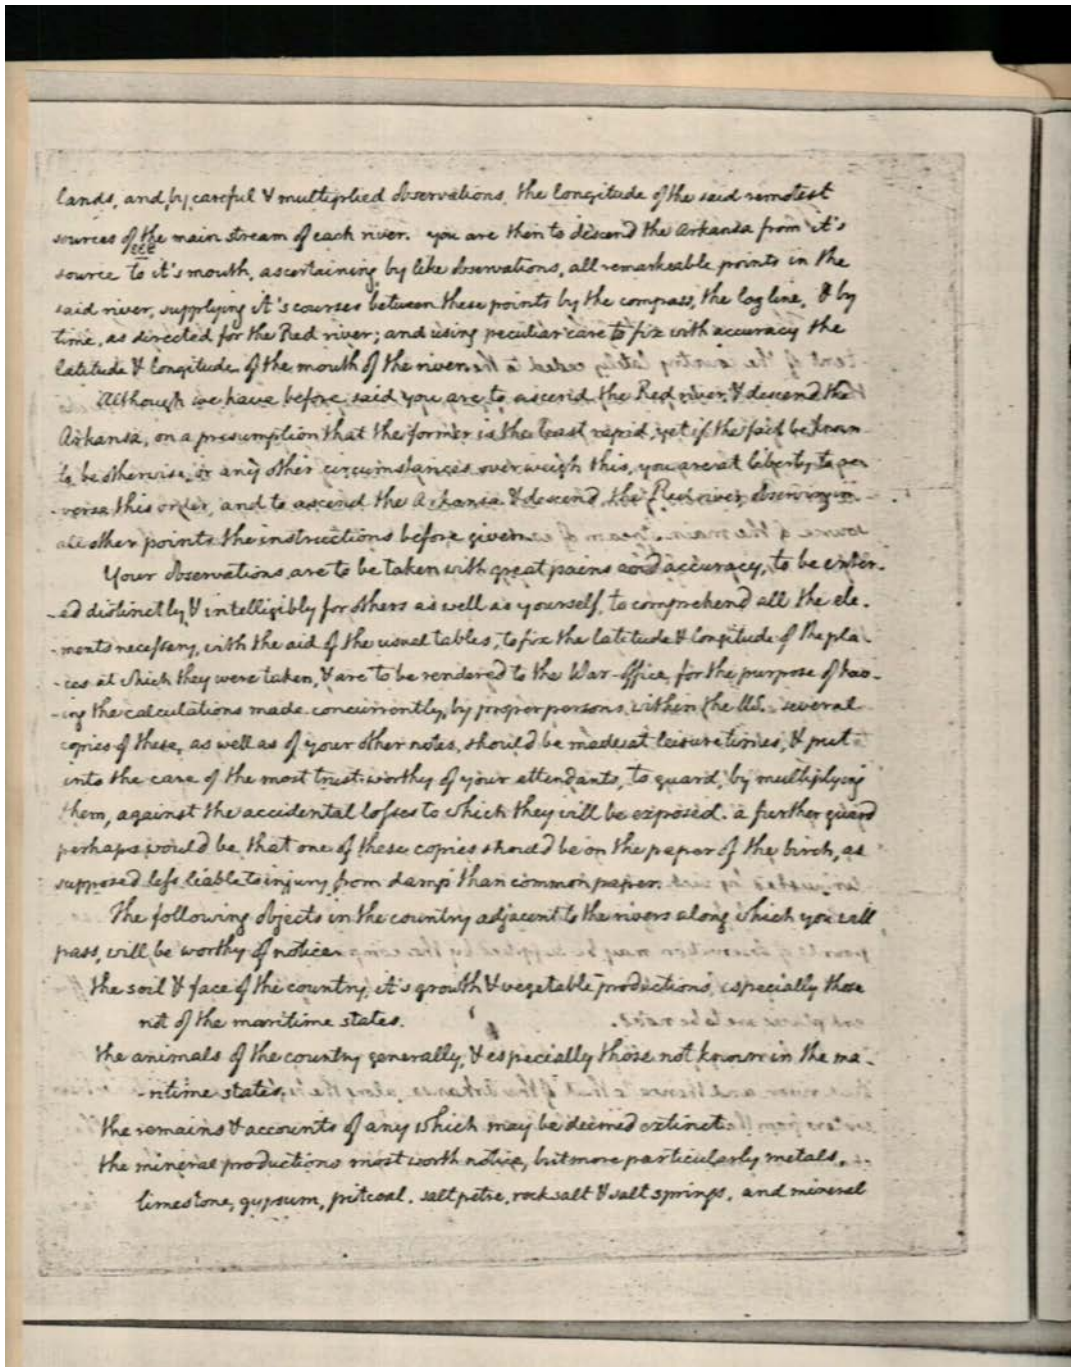 lands, and, by careful & multiplied observations, the longitude of the said remotest
sources of the main stream of each river. you are then to descend the Arkansa from it's
source to it's mouth, ascertaining by like observations, all remarkeable points in the
said river, supplying it's courses between these points by the compass, the log line, & by
time, as directed for the Red river; and using peculiar care to fix with accuracy the
latitude & longitude of the mouth of the river.
Although we have before said you are to ascend the Red river, & descend the
Arkansa, on a presumption that the former is the least rapid, yet if the fact be known
to be otherwise, or any other circumstances overweigh this, you are at liberty to re
-verse this order, and to ascend the Arkansa & descend the Red river, observing in
all other points the instructions before given.
Your observations are to be taken with great pains and accuracy, to be enter-
-ed distinctly & intelligibly for others as well as yourself, to comprehend all the ele-
-ments necessary, with the aid of the usual tables, to fix the latitude & longitude of the pla-
-ces at which they were taken, & are to be rendered to the War-office, for the purpose of hav-
-ing the calculations made concurrently, by proper persons within the U.S. several
copies of these, as well as of your other notes, should be made at leisure times, & put
into the care of the most trust-worthy of your attendants, to guard, by multiplying
them, against the accidental losses to which they will be exposed. a further guard
perhaps would be that one of these copies should be on the paper of the birch, as
supposed less liable to injury from damp than common paper.
The following objects in the country adjacent to the rivers along which you will
pass, will be worthy of notice.
the soil & face of the country, it's growth & vegetable productions, especially those
not of the maritime states.
the animals of the country generally, & especially those not known in the ma-
-ritime states.
the remains & accounts of any which may be deemed extinct.
the mineral productions most worth notice, but more particularly metals,
limestone, gypsum, pitcoal, saltpetre, rock salt & salt springs, and mineral